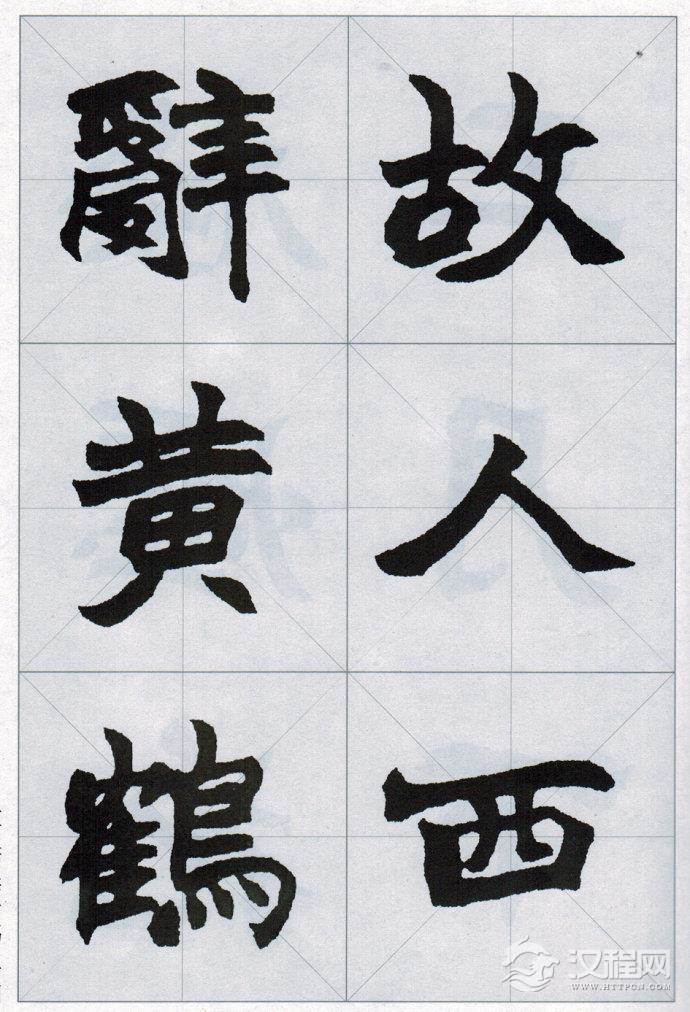 故人西
辭黄鶴
汉程网
WWW.HTTPCN.COM